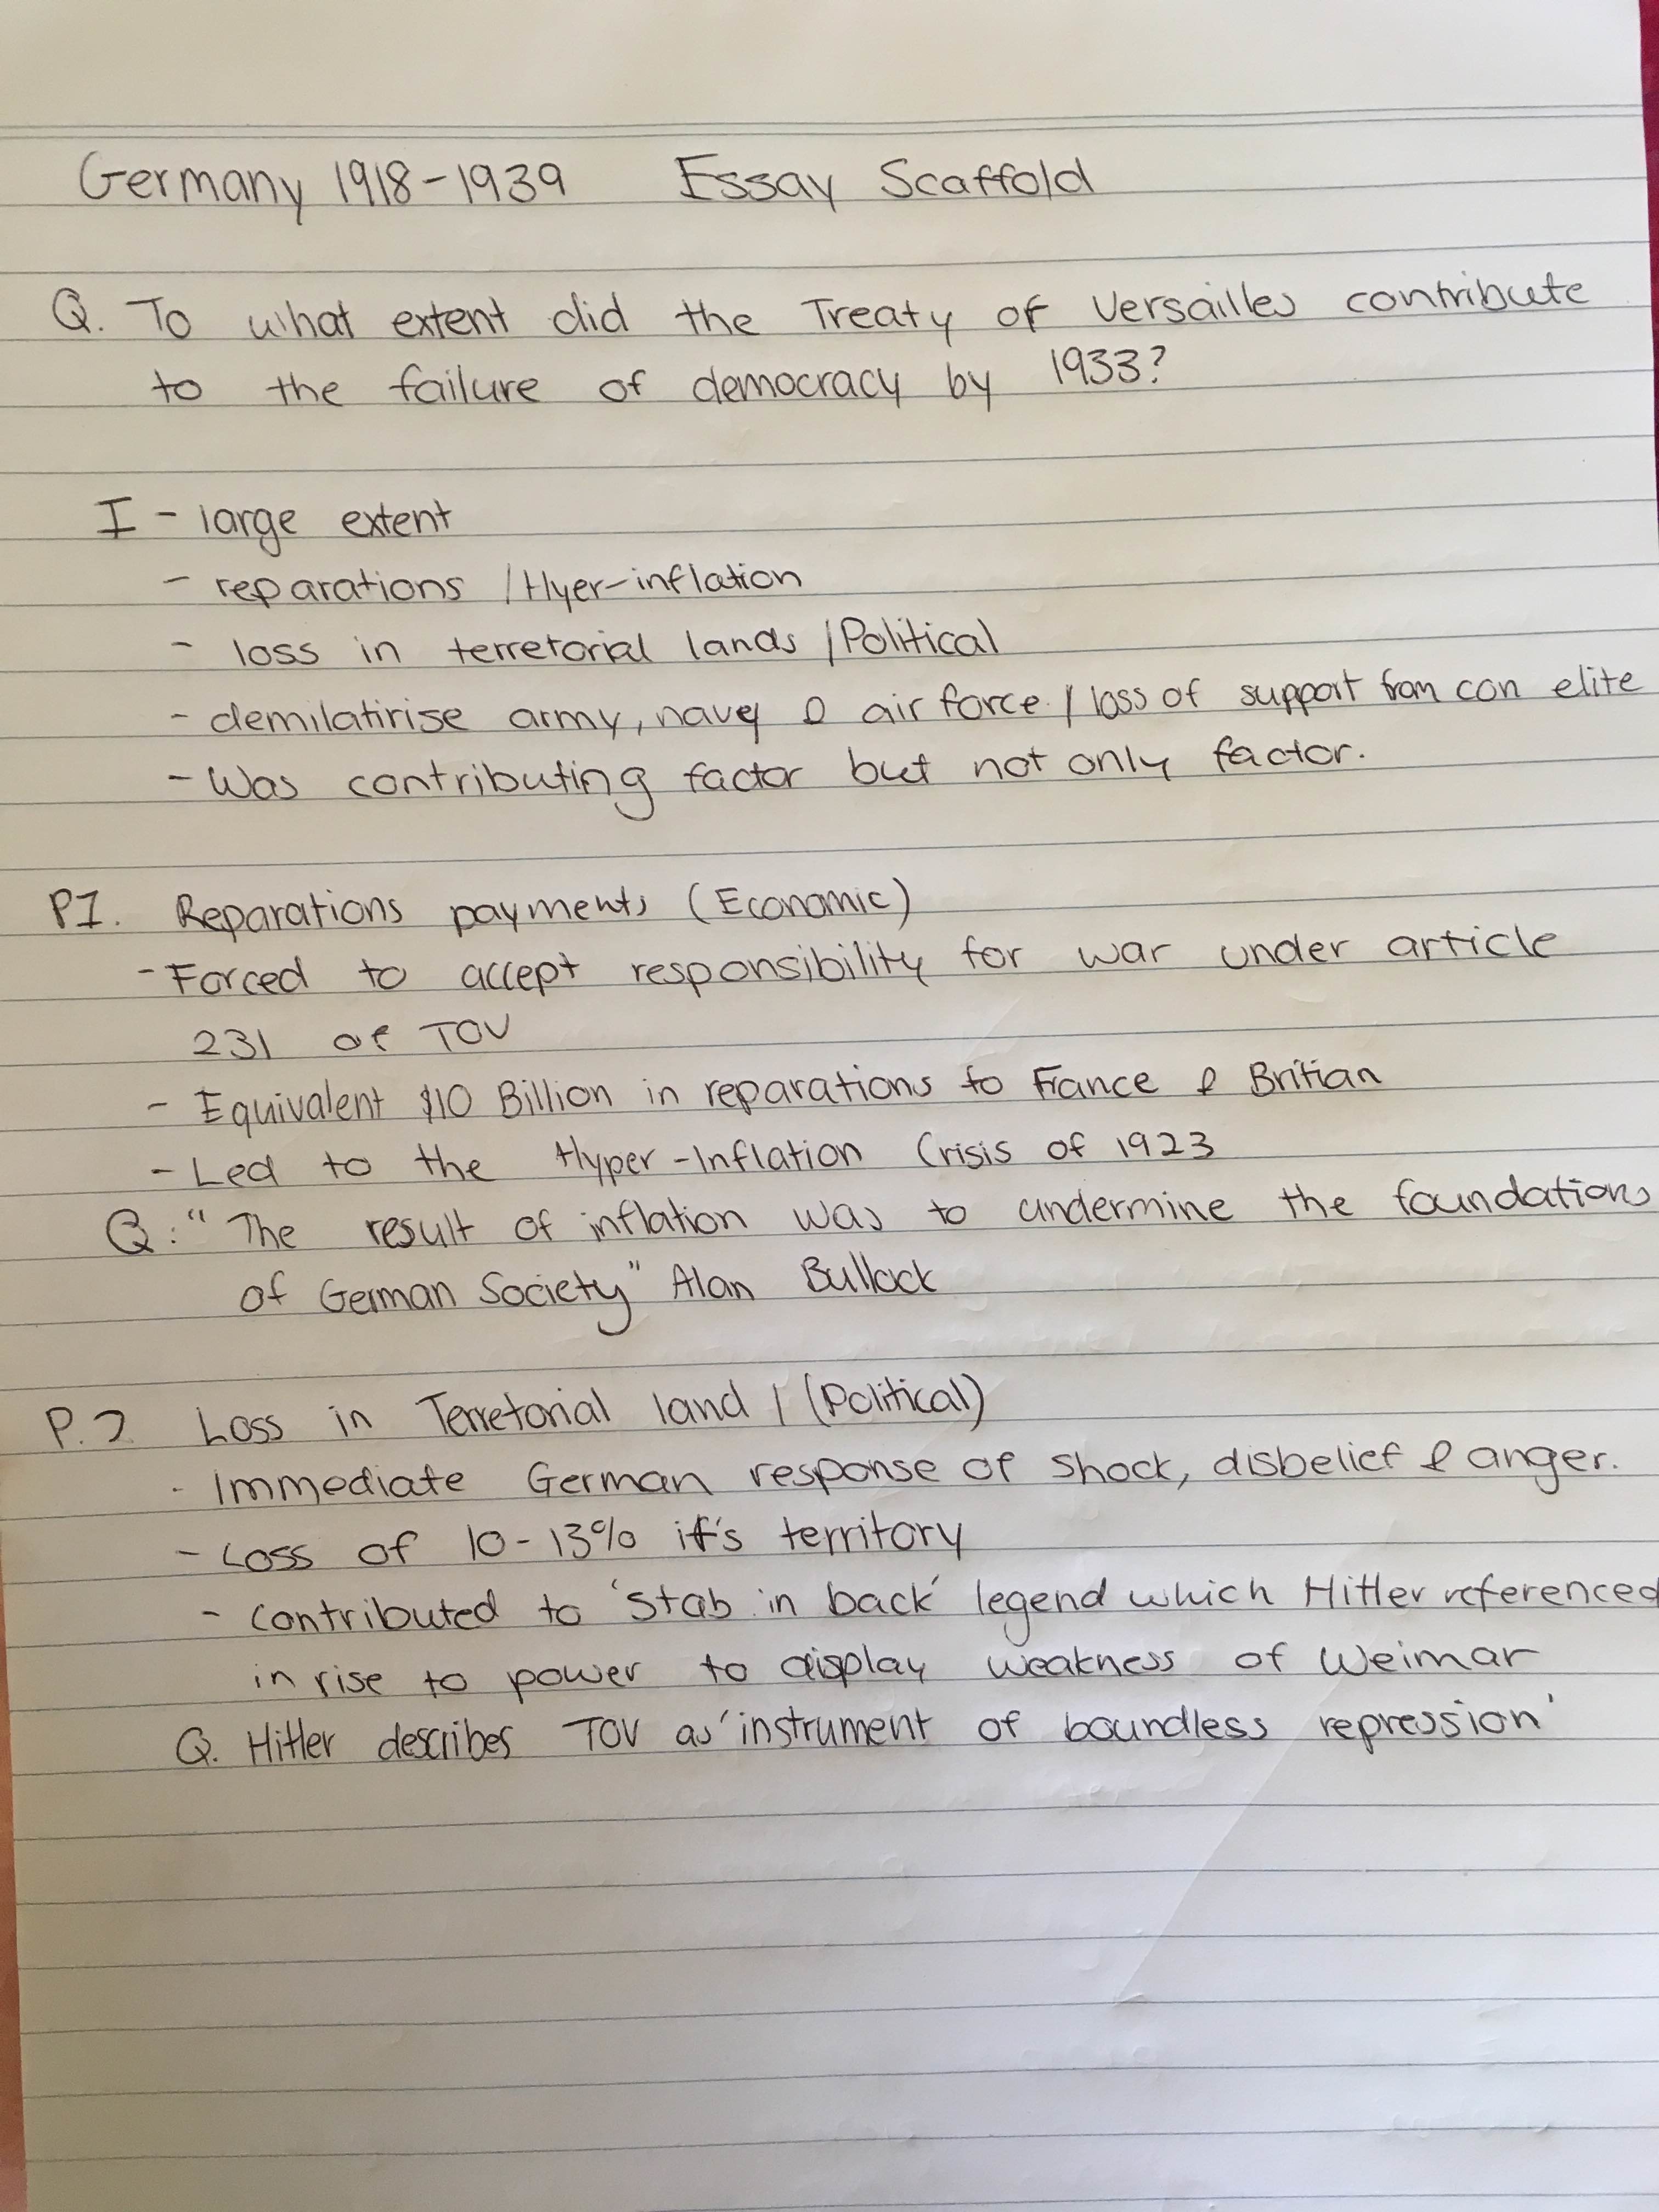 Germany 1918-1939 Essay Scaffold
Q. To what extent did the Treaty of Versailles contribute
to the failure of democracy by 1933?
I - large extent
- reparations / Hyer-inflation
- loss in terretorial lands / Political
- demilatirise army, navey & air force / loss of support from con elite
- Was contributing factor but not only factor.
P1. Reparations payments (Economic)
- Forced to accept responsibility for war under article
231 of TOV
- Equivalent $10 Billion in reparations to France & Britian
- Led to the Hyper-Inflation Crisis of 1923
Q: "The result of inflation was to undermine the foundations
of German Society" Alan Bullock
P.2 Loss in Terretorial land / (Political)
. Immediate German response of shock, disbelief & anger.
- Loss of 10-13% it's territory
- Contributed to 'Stab in back' legend which Hitler referenced
in rise to power to display weakness of Weimar
Q. Hitler describes TOV as 'instrument of boundless repression'